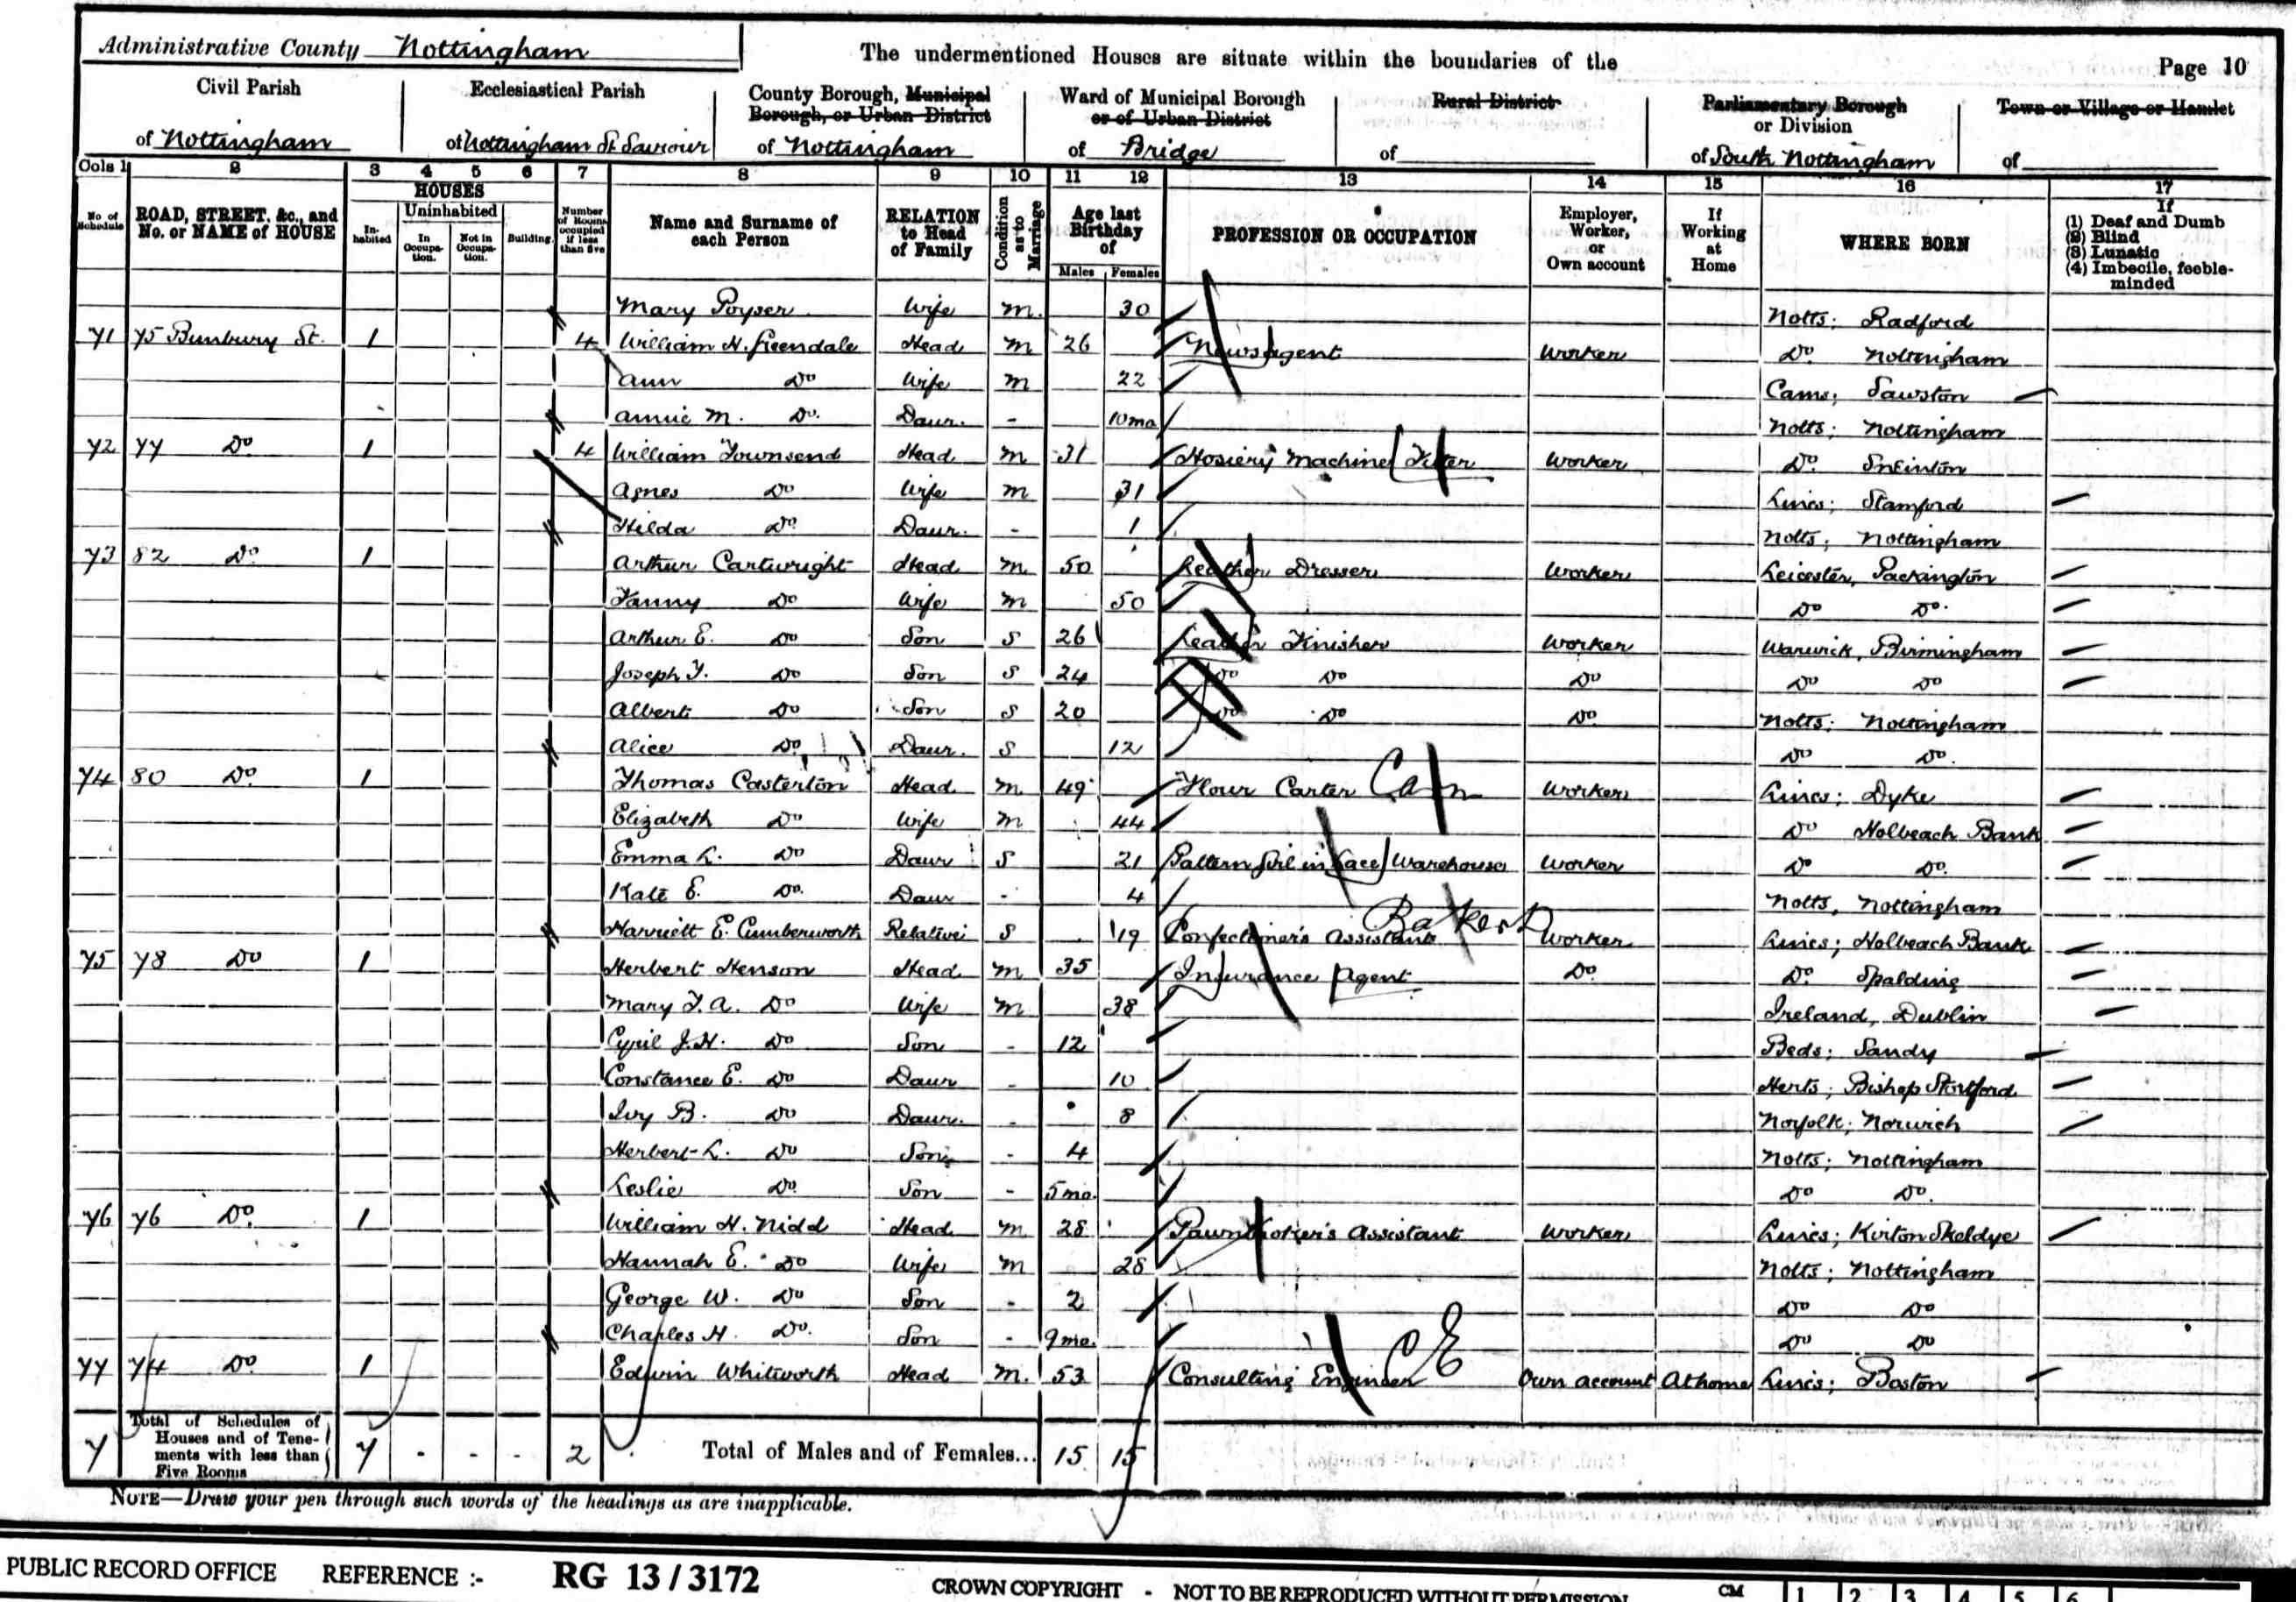 Administrative County Nottingham
The undermentioned Houses are situate within the boundaries of the
Page 10
Civil Parish of Nottingham
Ecclesiastical Parish of Nottingham St Saviour
County Borough, Municipal Borough, or Urban District of Nottingham
Ward of Municipal Borough or of Urban District of Bridge
Rural District of
Parliamentary Borough or Division of South Nottingham
Town or Village or Hamlet of
Cols 1 2 3 4 5 6 7 8 9 10 11 12 13 14 15 16 17
No. of Schedule
ROAD, STREET, &c., and No. or NAME of HOUSE
HOUSES
In-habited
Uninhabited
In Occupa-tion.
Not in Occupa-tion.
Building.
Number of Rooms occupied if less than five
Name and Surname of each Person
RELATION to Head of Family
Condition as to Marriage
Age last Birthday of
Males Females
PROFESSION OR OCCUPATION
Employer, Worker, or Own account
If Working at Home
WHERE BORN
If
(1) Deaf and Dumb
(2) Blind
(3) Lunatic
(4) Imbecile, feeble-minded
Mary Poyser Wife M. 30 Notts; Radford
71 75 Bunbury St. 1 4 William H. Greendale Head M 26 Newsagent Worker Do. Nottingham
Ann Do Wife M 22 Cams; Sawston
Annie M. Do. Daur. - 10mo Notts; Nottingham
72 77 Do 1 4 William Townsend Head M 31 Hosiery Machine Fitter Worker Do. Sneinton
Agnes Do Wife M 31 Lincs; Stamford
Hilda Do. Daur. - 1 Notts; Nottingham
73 82 Do. 1 Arthur Cartwright Head M 50 Leather Dresser Worker Leicester, Packington
Fanny Do Wife M 50 Do Do.
Arthur E. Do Son S 26 Leather Finisher Worker Warwick, Birmingham
Joseph F. Do Son S 24 Do Do Do Do Do
Albert Do Son S 20 Do Do Do. Notts; Nottingham
Alice Do. Daur. S 12 Do Do.
74 80 Do. 1 Thomas Casterton Head M 49 Flour Carter Worker Lincs; Dyke
Elizabeth Do Wife M 44 Do Holbeach Bank
Emma L. Do Daur S 21 Pattern Girl in Lace Warehouse Worker Do Do.
Kate E. Do. Daur - 4 Notts, Nottingham
Baker
Harriett E. Cumberworth Relative S 19 Confectioner's Assistant Worker Lincs; Holbeach Bank
75 78 Do 1 Herbert Henson Head M 35 Insurance Agent Do. Do. Spalding
Mary F. A. Do Wife M 38 Ireland, Dublin
Cyril J. H. Do Son - 12 Beds; Sandy
Constance E. Do Daur - 10 Herts; Bishop Stortford
Ivy B. Do Daur. - 8 Norfolk; Norwich
Herbert L. Do Son - 4 Notts; Nottingham
Leslie Do. Son - 5mo. Do Do.
76 76 Do. 1 William H. Nidd Head M 28 Pawnbroker's Assistant Worker Lincs; Kirton Skeldye
Hannah E. Do Wife M 28 Notts; Nottingham
George W. Do Son - 2 Do Do
Charles H. Do. Son - 9mo. Do Do
77 74 Do. 1 Edwin Whitworth Head M. 53 Consulting Engineer CE Own account At home Lincs; Boston
7 Total of Schedules of Houses and of Tene-ments with less than Five Rooms 7 - - - 2 Total of Males and of Females... 15 15
NOTE—Draw your pen through such words of the headings as are inapplicable.
PUBLIC RECORD OFFICE REFERENCE :- RG 13 / 3172
CROWN COPYRIGHT - NOT TO BE REPRODUCED WITHOUT PERMISSION
CM 1 2 3 4 5 6